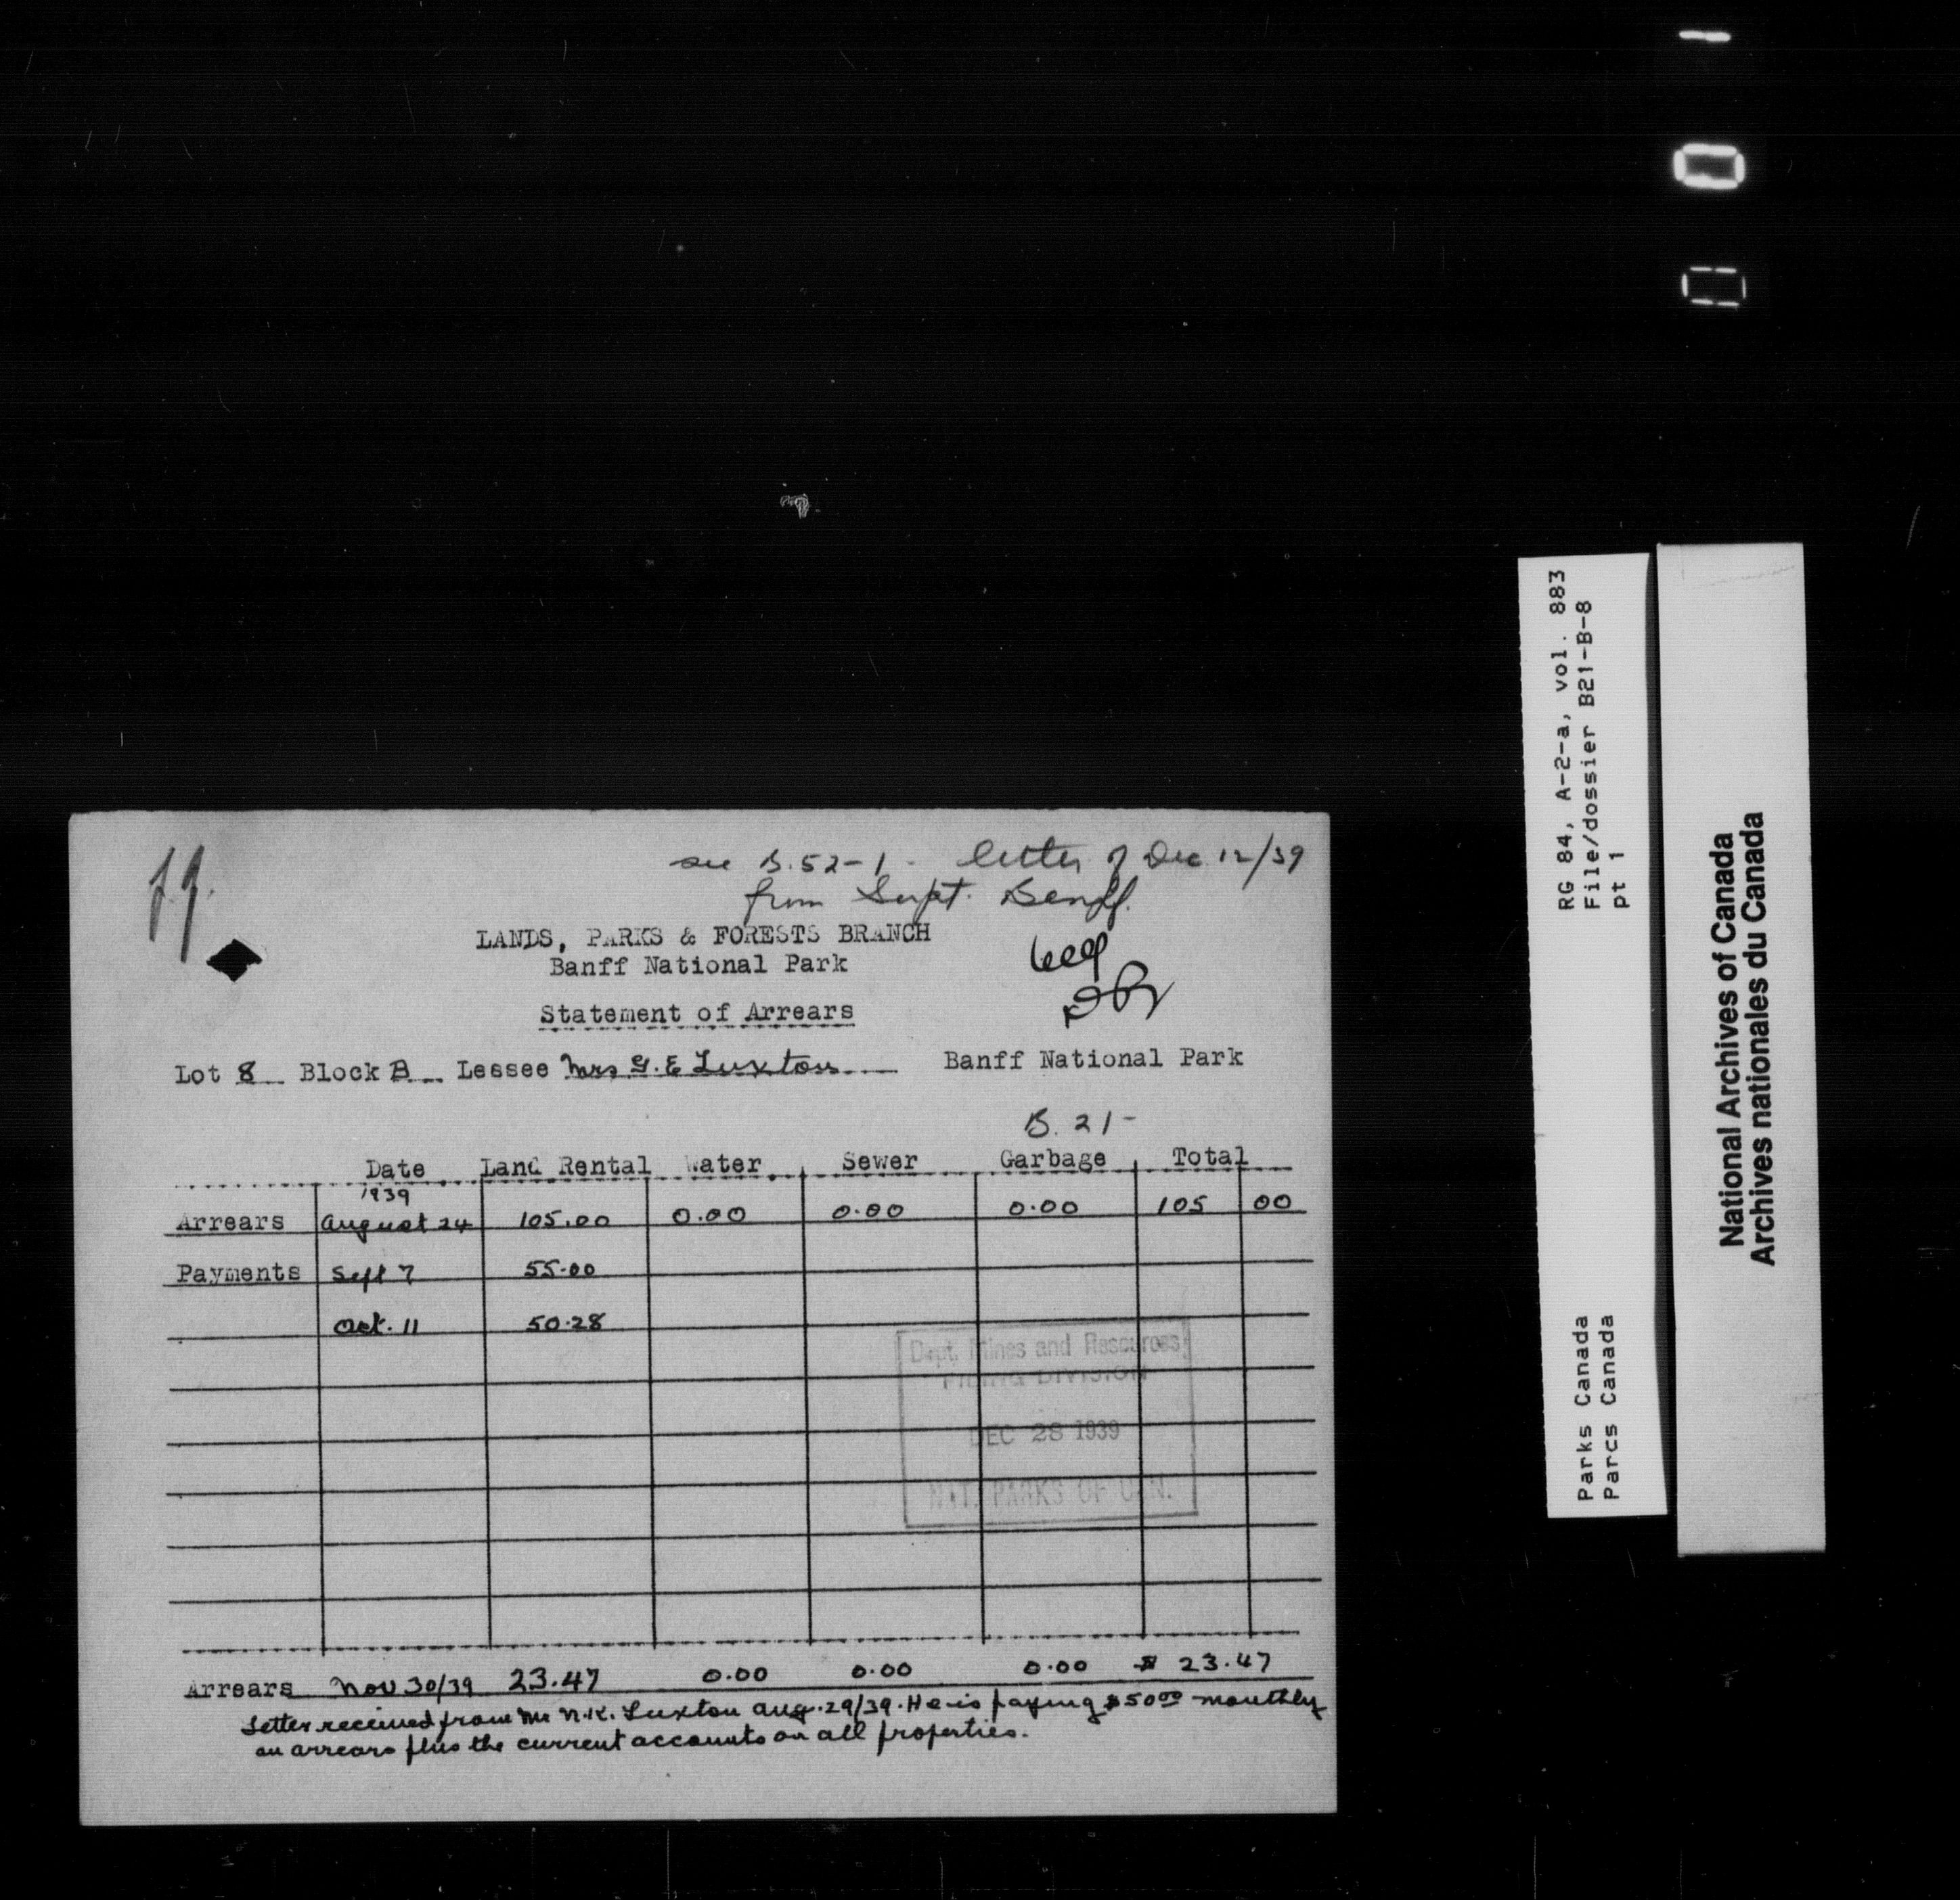 see B.52-1 - letter of Dec 12/39
from Supt. Banff.
LANDS, PARKS & FORESTS BRANCH
Banff National Park
Statement of Arrears
Lot 8 Block B Lessee Mrs G. E Luxton Banff National Park
B. 21-
Date Land Rental Water Sewer Garbage Total
1939
Arrears August 24 105.00 0.00 0.00 0.00 105 00
Payments Sept 7 55.00
Oct. 11 50.28
Dept. Mines and Resources
FILING DIVISION
DEC 28 1939
NAT. PARKS OF CAN.
Arrears Nov 30/39 23.47 0.00 0.00 0.00 $ 23.47
Letter received from Mr N.K. Luxton Aug. 29/39. He is paying $50.00 monthly
on arrears plus the current accounts on all properties.
RG 84, A-2-a, vol. 883
File/dossier B21-B-8
pt 1
Parks Canada
Parcs Canada
National Archives of Canada
Archives nationales du Canada